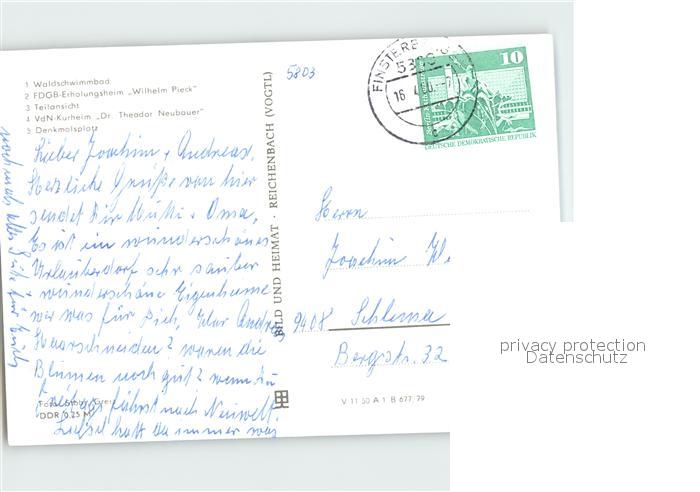 1 Waldschwimmbad
2 FDGB-Erholungsheim „Wilhelm Pieck"
3 Teilansicht
4 VdN-Kurheim „Dr. Theodor Neubauer"
5 Denkmalsplatz
5803
FINSTERB
16.4
10
DEUTSCHE DEMOKRATISCHE REPUBLIK
Lieber Joachim + Andreas,
Herzliche Grüße von hier
sendet Dir Mutti + Oma,
Es ist ein wunderschönes
Urlauberdorf sehr sauber
+ wunderschöne Eigenheime
wer was für Dich, War Andre
Haarschneiden? waren die
Blumen noch gut? wenn Du
fährst nach Neuwelt.
hast du immer was
nochmals alles Gute für Euch
BILD UND HEIMAT · REICHENBACH (VOGTL)
Herrn
Joachim W.
9408 Schlema
Bergstr. 32
DDR 0,25 M
V 11 50 A 1 B 677/79
privacy protection
Datenschutz